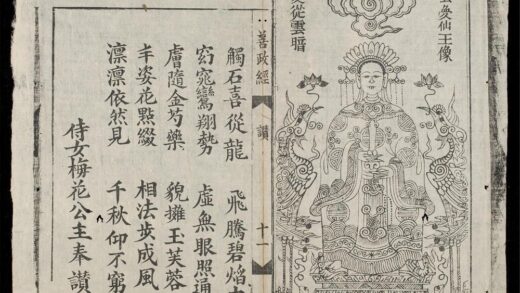 仙王像
從雲
善政經
讃
十一
觸石喜從龍 飛騰碧焰
窈窕鸞翔勢 虛無眼照通
膚隨金芍藥 貌擁玉芙蓉
丰姿花點綴 相法步成風
凛凛依然見 千秋仰不窮
侍女梅花公主奉讃